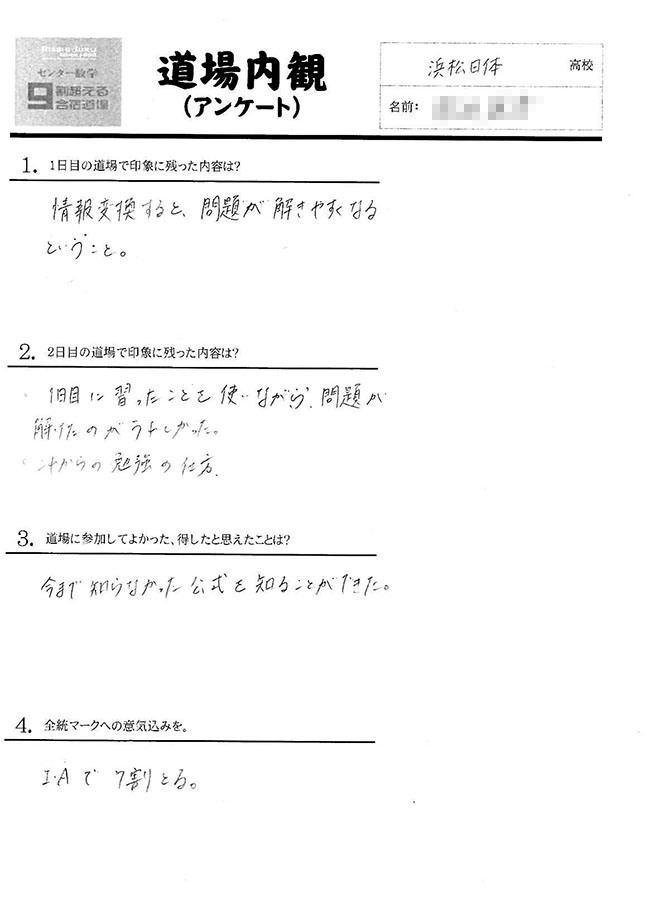 センター数学
9割超える
合宿道場
道場内観
(アンケート)
浜松日体 高校
名前:
1. 1日目の道場で印象に残った内容は?
情報変換すると、問題が解きやすくなる
ということ。
2. 2日目の道場で印象に残った内容は?
・1日目に習ったことを使いながら、問題が
解けたのがうれしかった。
・これからの勉強の仕方.
3. 道場に参加してよかった、得したと思えたことは?
今まで知らなかった公式を知ることができた。
4. 全統マークへの意気込みを。
I・Aで7割とる。